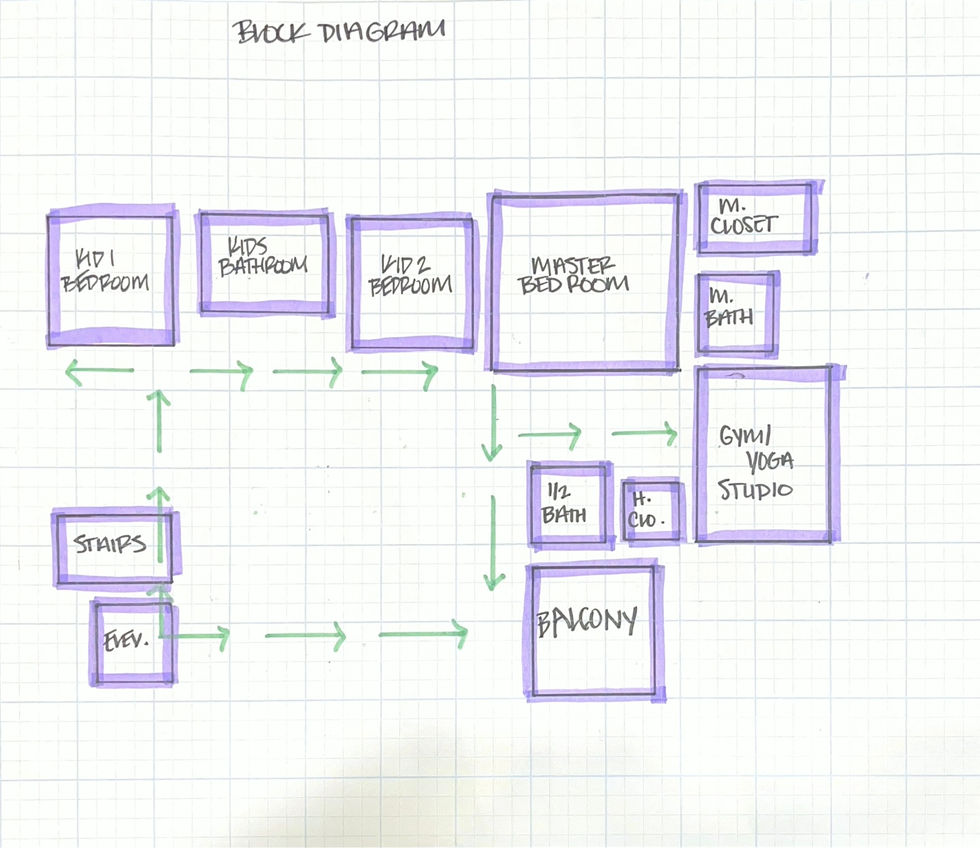 BLOCK DIAGRAM
KID 1
BEDROOM
KIDS
BATHROOM
KID 2
BEDROOM
MASTER
BEDROOM
M.
CLOSET
M.
BATH
GYM/
YOGA
STUDIO
1/2
BATH
H.
CLO.
STAIRS
ELEV.
BALCONY